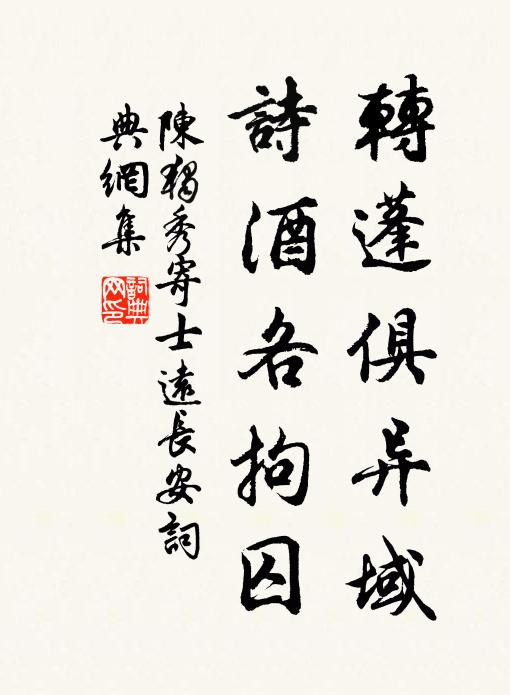 轉蓬俱异域
詩酒各拘囚
陳獨秀寄士遠長安詞
典網集
詞典
网印